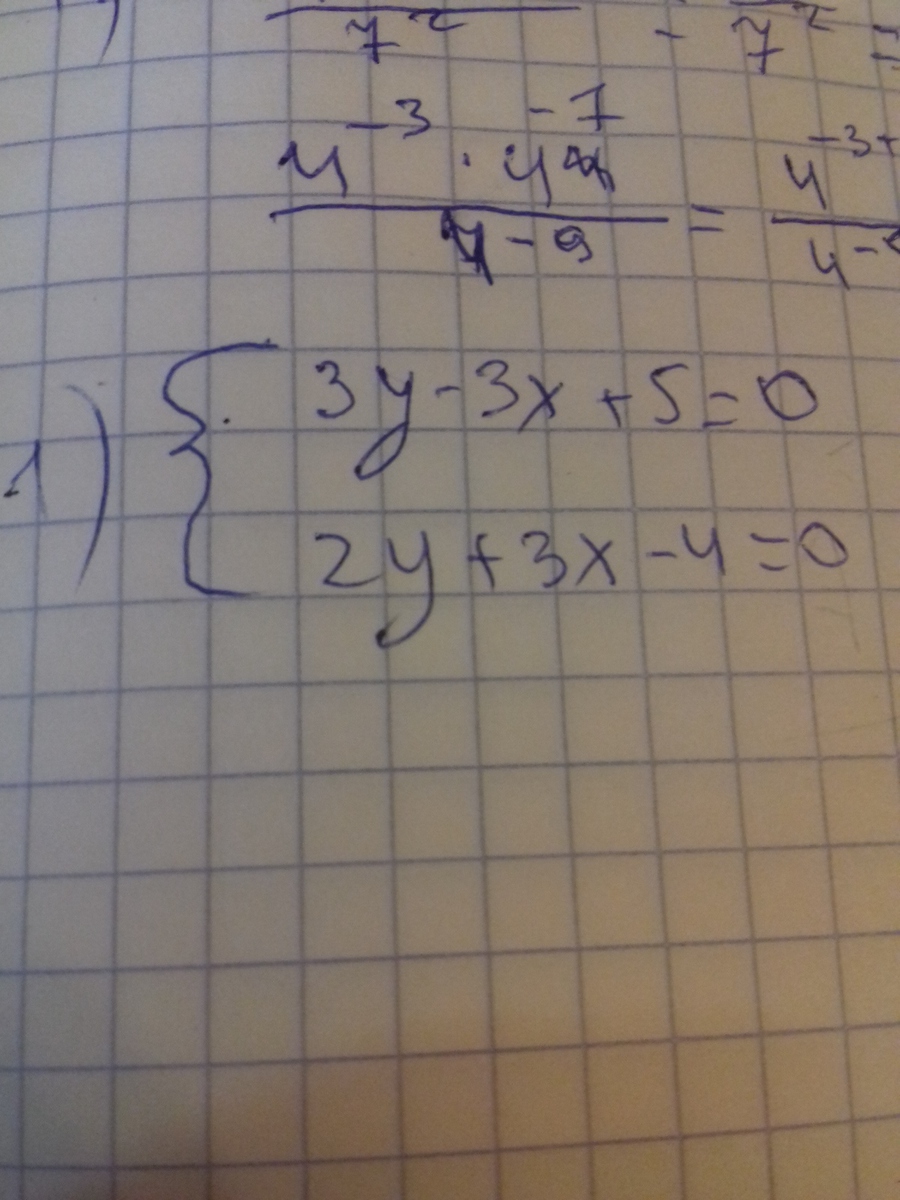 ) 7² - 7² =
4⁻³ · 4⁻⁷ / 4⁻⁹ = 4⁻³⁺ / 4⁻⁹
1) { 3y - 3x + 5 = 0
2y + 3x - 4 = 0